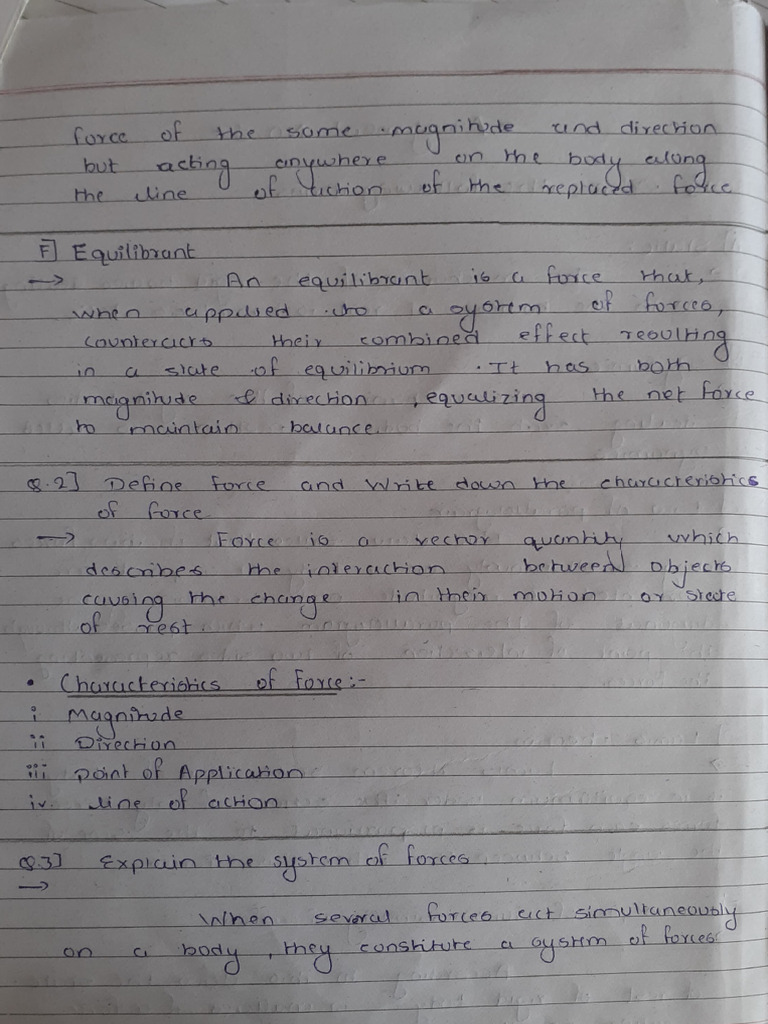 force of the same magnitude and direction
but acting anywhere on the body along
the line of action of the replaced force
F] Equilibrant
→ An equilibrant is a force that,
when applied to a system of forces,
counteracts their combined effect resulting
in a state of equilibrium. It has both
magnitude & direction, equalizing the net force
to maintain balance.
Q.2] Define force and Write down the characteristics
of force
→ Force is a vector quantity which
describes the interaction between objects
causing the change in their motion or state
of rest.
• Characteristics of Force:-
i Magnitude
ii Direction
iii point of Application
iv. line of action
Q.3] Explain the system of forces
→
When several forces act simultaneously
on a body, they constitute a system of forces